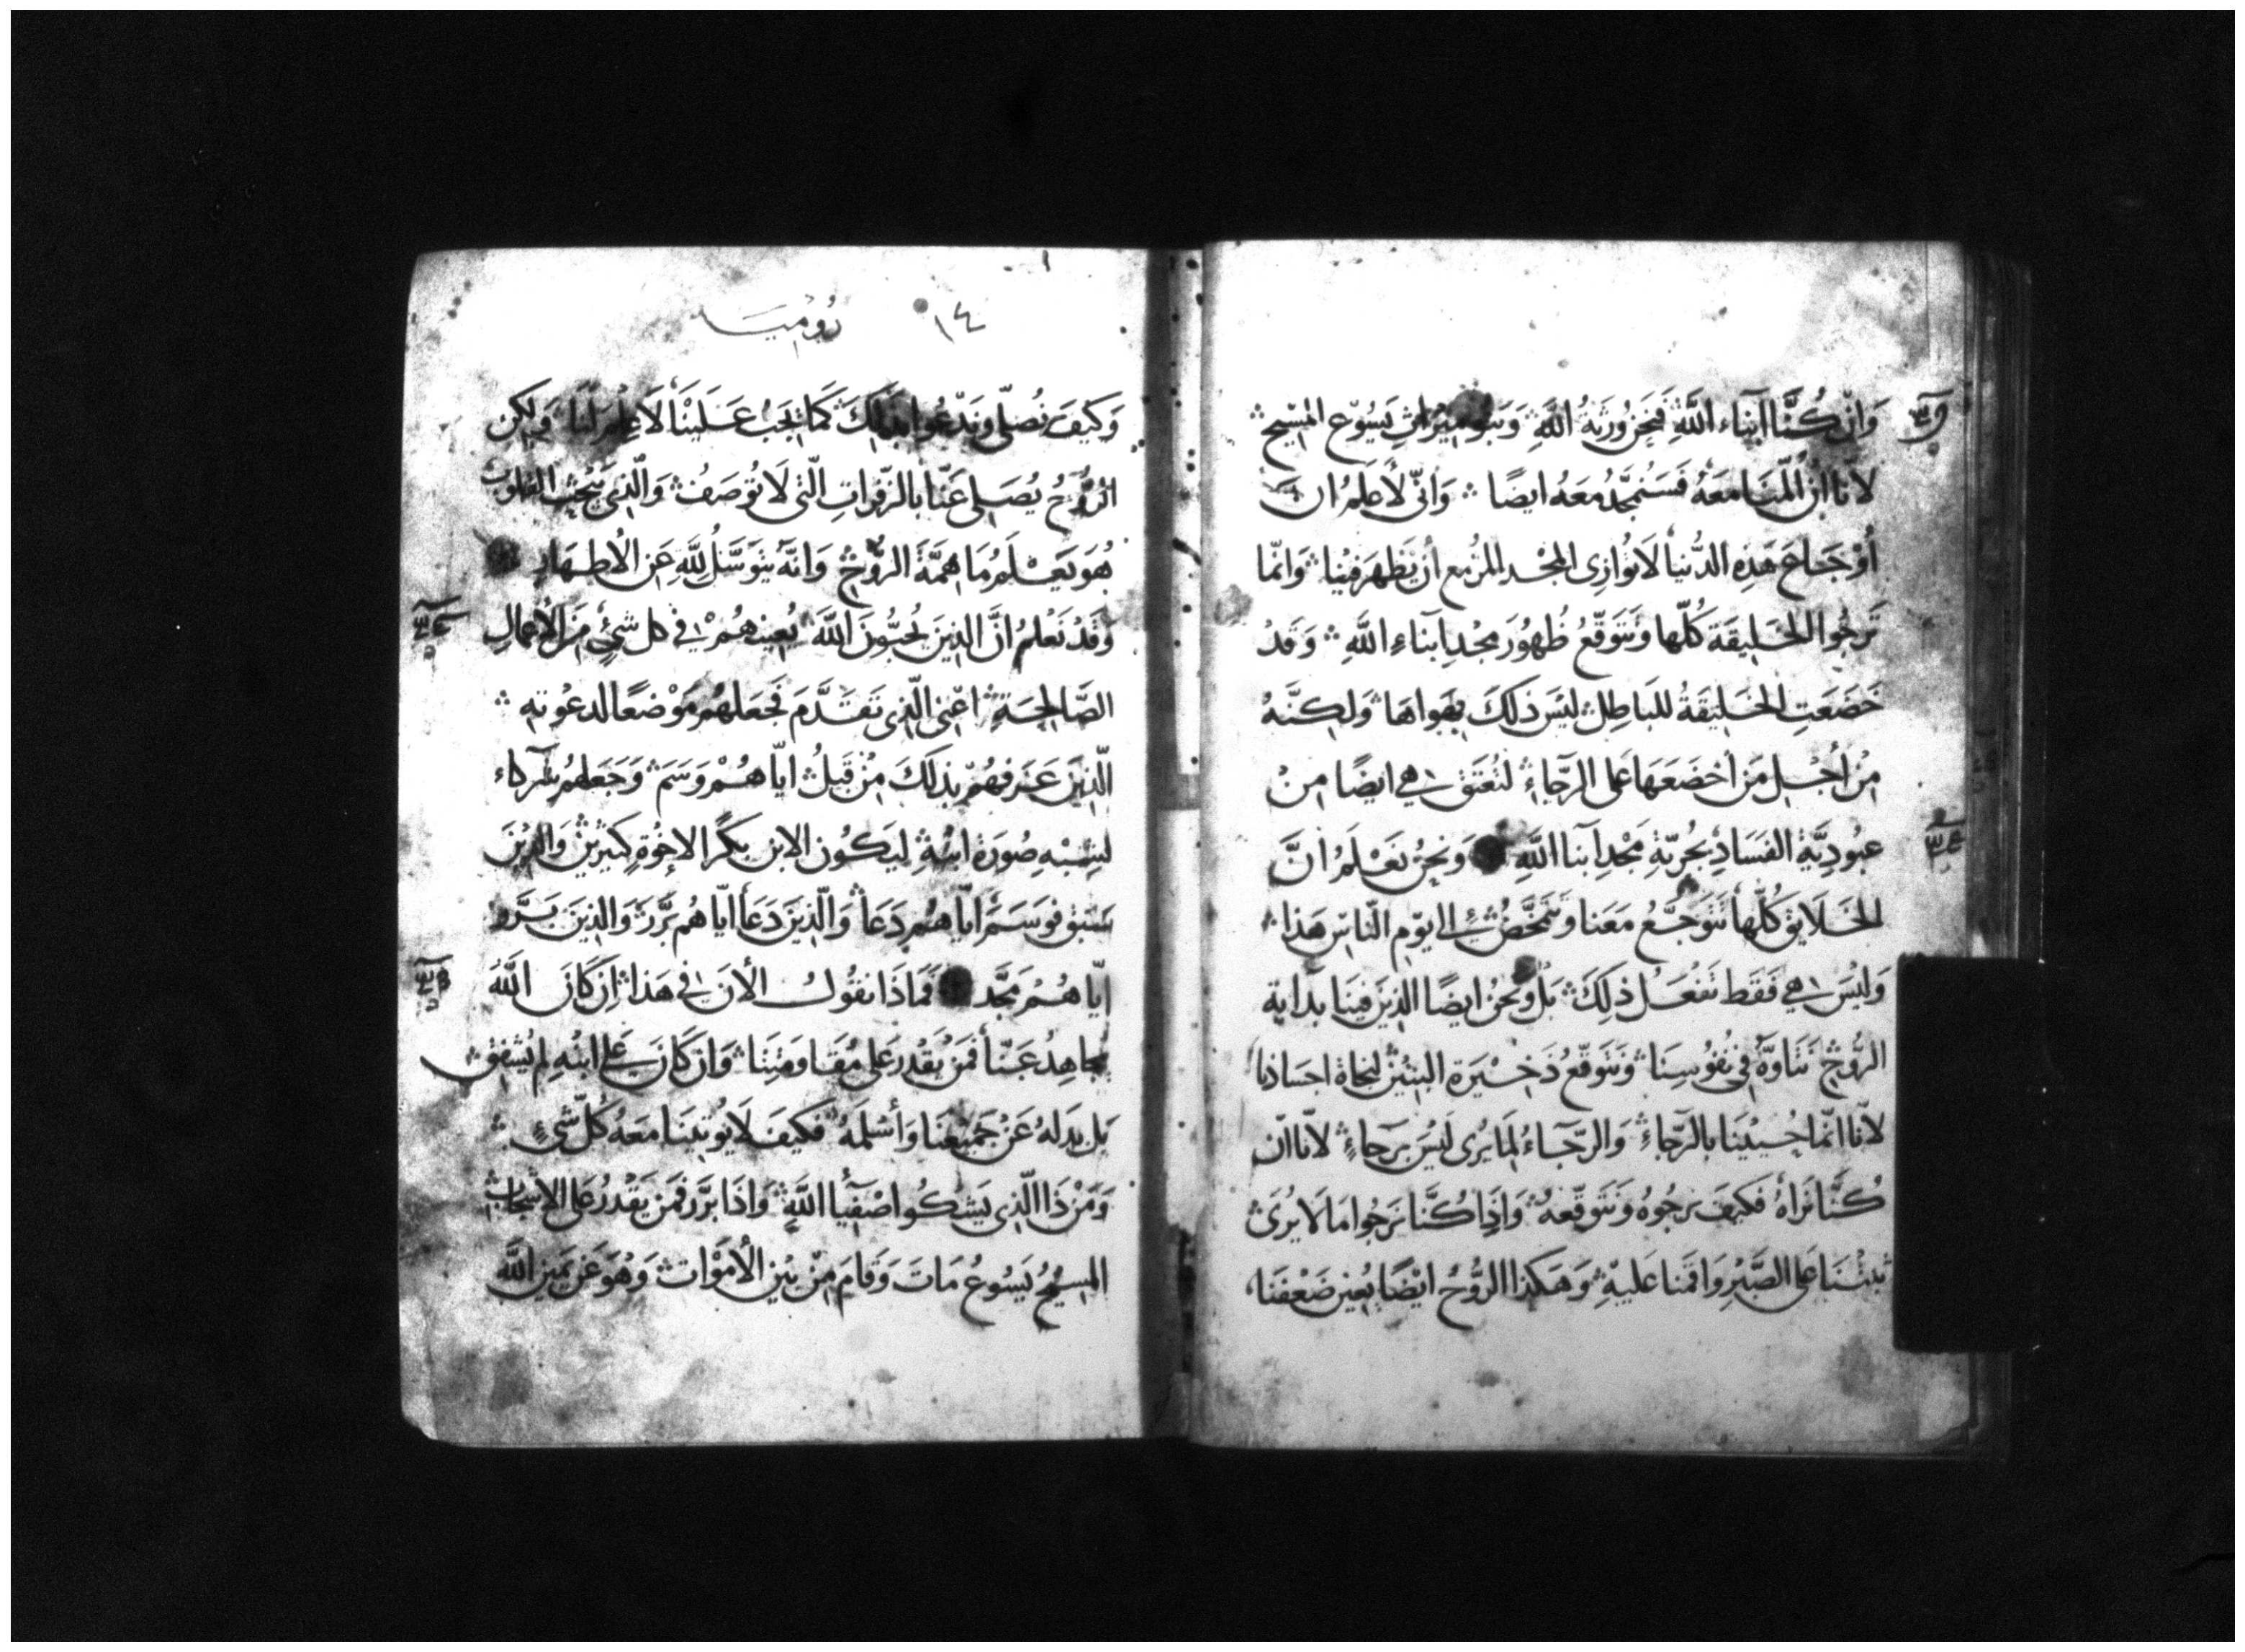 وَاِنْ كُنَّا ابْنَاء اللَّهِ فَنَحْنُ وَرَثةُ اللَّهِ وَبَنُو مِيْرَاثِ يَسُوْع المَسِيْح
لانّا اِنْ أَلِمْنَا مَعَهُ فَسَنُمَجَّدُ مَعَهُ ايضًا وَانّى لأَعلَمُ ان
أَوْجَاعَ هَذِهِ الدُّنيا لَا تُوَازِى المَجْد المزُمع أن يَظهَر فِيْنا وَانّما
تَرجُوا الخَلِيقَة كُلّها وَتَتَوَقّعُ ظُهُورَ مَجْدِ ابنَاءِ اللَّهِ وَقَدْ
خَضَعَتِ الخَلِيقَةُ للبَاطِل لَيْسَ ذَلكَ بِهَواهَا وَلكِنَّهُ
مِنْ أجْلِ مَن أخضَعَهَا عَلى الرّجَاءِ لتُعتَق هي ايضًا مِنْ
عبُودِيَّةِ الفَسَادِ بحُريّةِ مَجْدِ ابنا اللَّهِ وَنَحنُ نَعْلَمُ انَّ
الخَلَايق كُلّها تَتَوَجَّعُ مَعَنا وَتتمَخَّضُ الى يَوْمِ النّاسِ هَذا
وَليْسَ هي فَقَط تَفعَلُ ذلِكَ بَلْ وَنحنُ ايضًا الذِينَ فِينَا بدَاية
الرُّوْحِ نَتَاوَّهُ فِى نُفُوسِنَا وَنتَوقّعُ ذَخِيْرَة البَنِيْنَ لنجاة اجسَادنا
لانّا انّما حُيِيْنَا بالرّجَاءِ وَالرّجَاءُ لمَا يُرى لَيْسَ برَجاءٍ لانّا ان
كُنَّا نَراهُ فكَيفَ نرجُوهُ وَنَتَوقّعهُ وَاذا كُنَّا نَرجُوا مَا لَا يُرَى
ثبتْنَا عَلى الصَّبْرِ وَاقمنا عَليهِ وَهكذا الرُّوْحُ ايْضًا يُعِين ضَعْفَنا
١٤ رُوْمِيَه
وَكيفَ نُصَلّى وَنَدْعُوا بذَلكَ كَمَا يَجِبُ عَلَيْنَا لَا عِلْمَ لَنا وَلكِن
الرُّوْحُ يُصَلِى عَنّا بالزّفرَاتِ الّتى لَا تُوصَفُ وَالّذِى يبْحَث القلوب
هُوَ يَعْلَمُ مَا همَّةُ الرُّوْحِ وَانّهُ يتَوَسَّلُ للَّهِ عَن الاطهَارِ
وَقَدْ نَعْلمُ انَّ الذِينَ يُحبُّونَ اللَّهَ يُعِينهُمْ فى كل شَئٍ مِنَ الأعمَالِ
الصَّالِحَةِ اعْنِى الّذِى تَقَدَّمَ فَجَعلهُم مَوْضعًا لدعْوتهِ
الّذِينَ عَرفهُمْ بذلكَ مِنْ قَبلُ ايّاهُمْ وَسَمَ وَجَعَلهُم شركاء
لشِبْهِ صُورَة ابنهِ ليَكُون الابن بكرًا لاخْوَةٍ كَثِيْريْنَ وَالذِيْنَ
سَبَق فوَسَمَ ايّاهُم دَعَا وَالّذِينَ دَعَا ايّاهُم بَرَّرَ وَالذِينَ بَرَّر
ايّاهُمْ مَجَّد فَمَاذَا نقُولُ الأنَ فى هَذا اِنْ كَانَ اللَّهُ
يجاهِدُ عَنّا فَمَنْ يَقْدر عَلى مُقَاوَمتِنَا وَان كَانَ عَلى ابنهِ لم يُشفِق
بَل بدَلهُ عَنْ جَميْعِنَا وَأسْلمَهُ فَكيفَ لَا يُوتِينَا مَعهُ كُلّ شئٍ
وَمَنْ ذَا الّذِى يَشكُوا اصْفيَا اللَّهِ وَاذَا بَرَّر فَمَن يَقْدرُ عَلى الاشجابِ
المسِيْحُ يَسُوعُ مَاتَ وَقامَ مِنْ بَيْنِ الأمْوَات وَهُوَ عَن يَمِينِ اللَّهِ